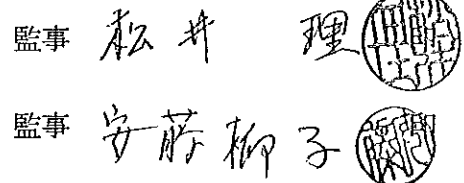 監事 松井 理
監事 安藤柳子